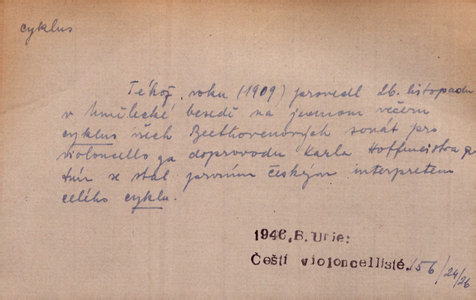 cyklus
Téhož roku (1909) provedl 26. listopadu
v Umělecké besedě na jednom večeru
cyklus všech Beethovenových sonát pro
violoncello za doprovodu Karla Hoffmeistra a
tím se stal prvním českým interpretem
celého cyklu.
1946, B. Urie:
Čeští violoncellisté. 156
24/26